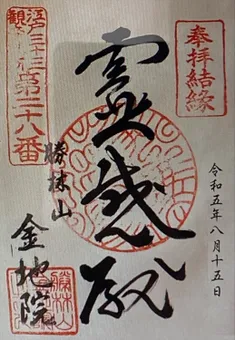 奉拝結縁
令和五年八月十五日
霊感殿
江戸三十三
観音第二十八番
勝林山
金地院